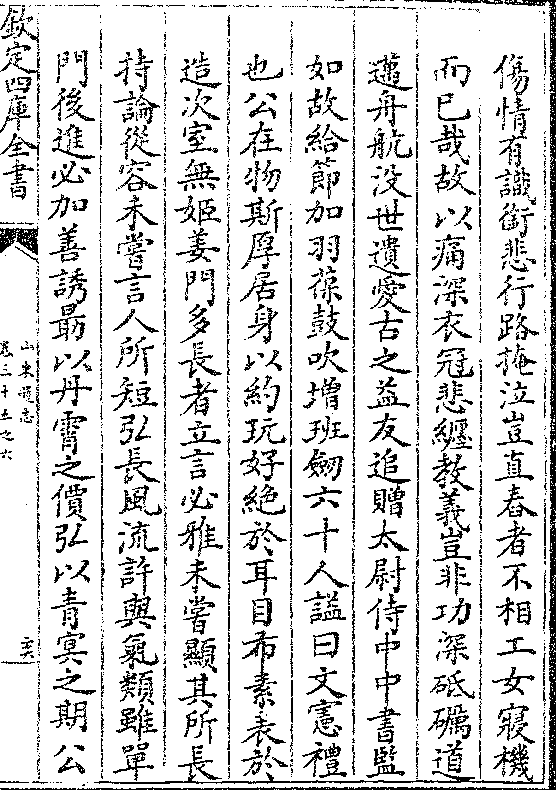 傷情有識銜悲行路掩泣豈直舂者不相工女寢機
而已哉故以痛深衣冠悲纏教義豈非功深砥礪道
邁舟航没世遺愛古之益友追贈太尉侍中中書監
如故給節加羽葆鼓吹增班劒六十人諡曰文憲禮
也公在物斯厚居身以約玩好絶於耳目布素表於
造次室無姬姜門多長者立言必雅未嘗顯其所長
持論從容未嘗言人所短弘長風流許與氣類雖單
門後進必加善誘朂以丹霄之價弘以青冥之期公
欽定四庫全書
山東通志
卷三十五之六